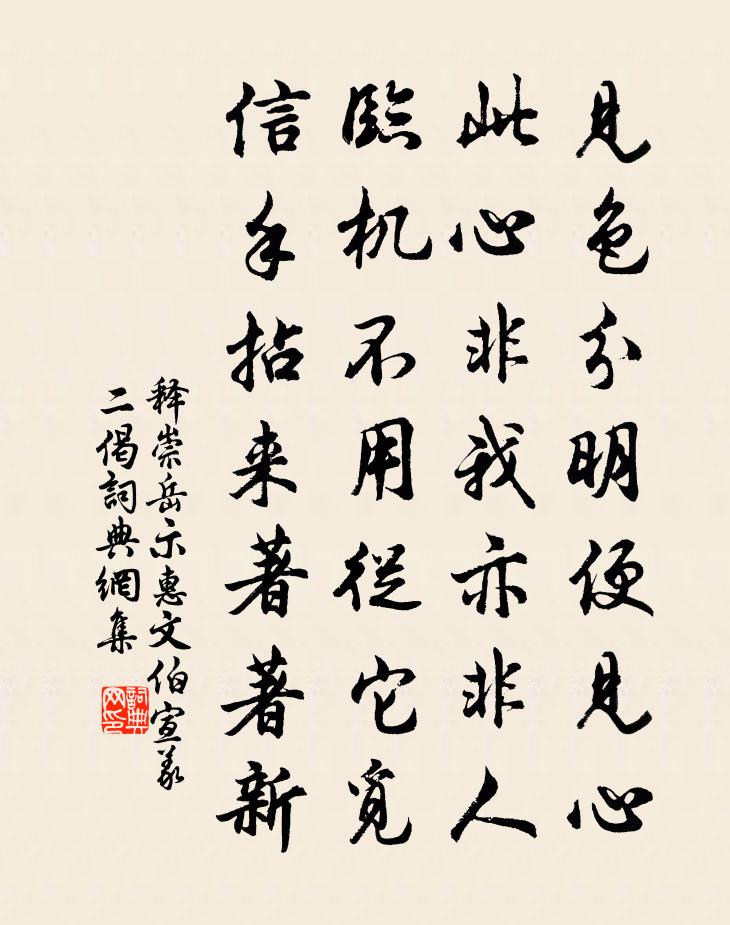 見色分明便見心
此心非我亦非人
臨机不用從它覓
信手拈来著著新
释崇岳示惠文伯宣义
二偈詞典網集
詞典
网印